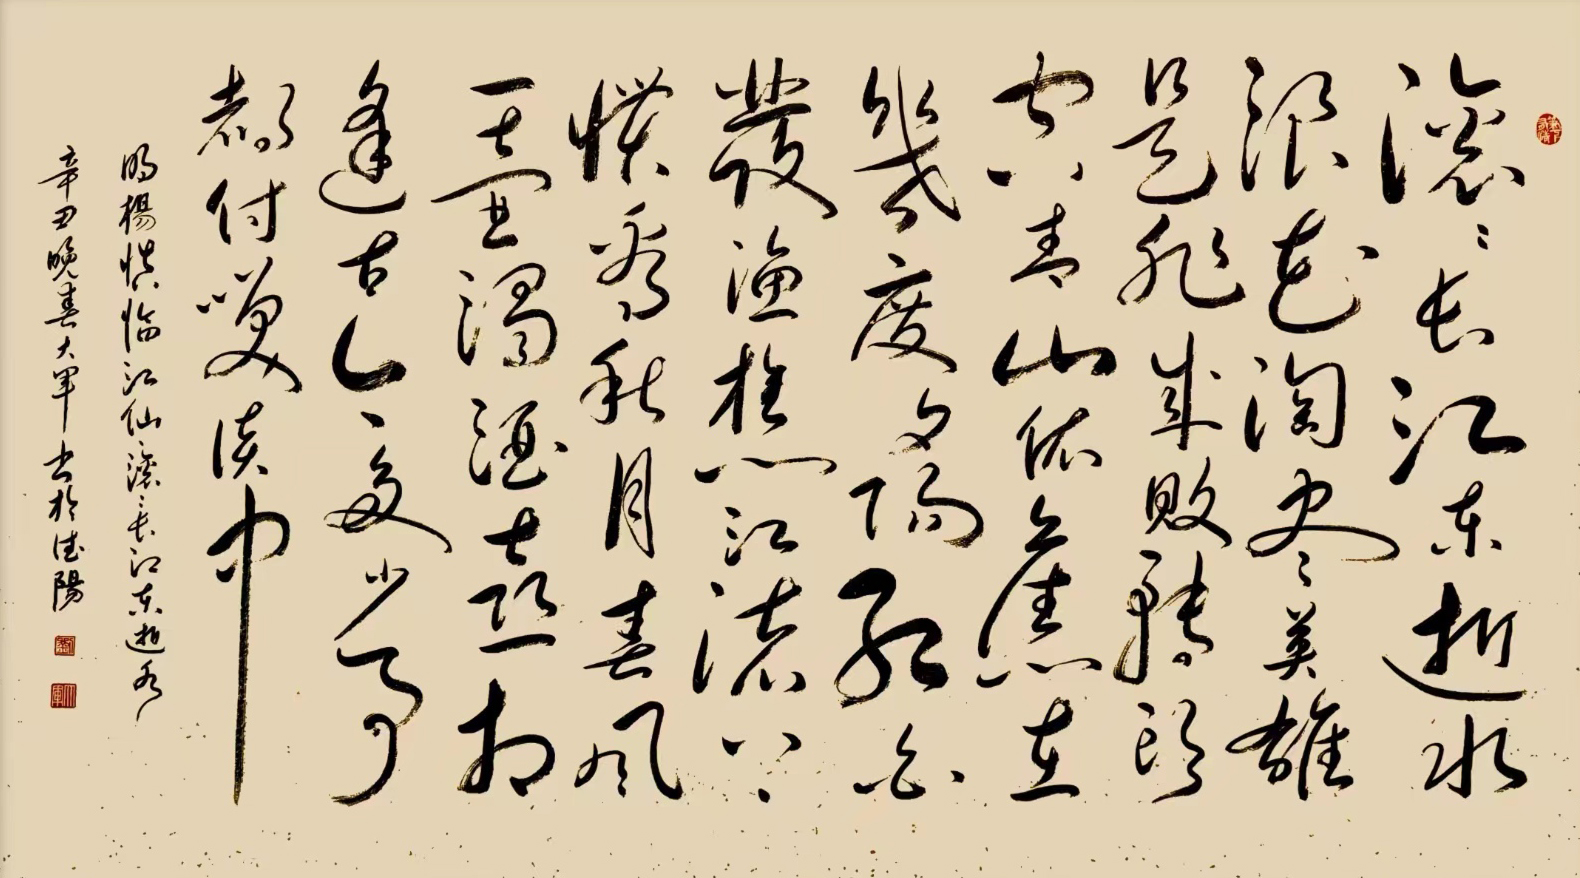 滚〻长江东逝水
浪花淘尽〻英雄
是非成败转头
空青山依舊在
幾度夕阳红白
發渔樵江渚上〻
惯看秋月春风
一壶濁酒喜相
逢古今〻多少事
都付笑谈中
明楊慎临江仙滚〻长江东逝水
辛丑晚春大军书於德陽